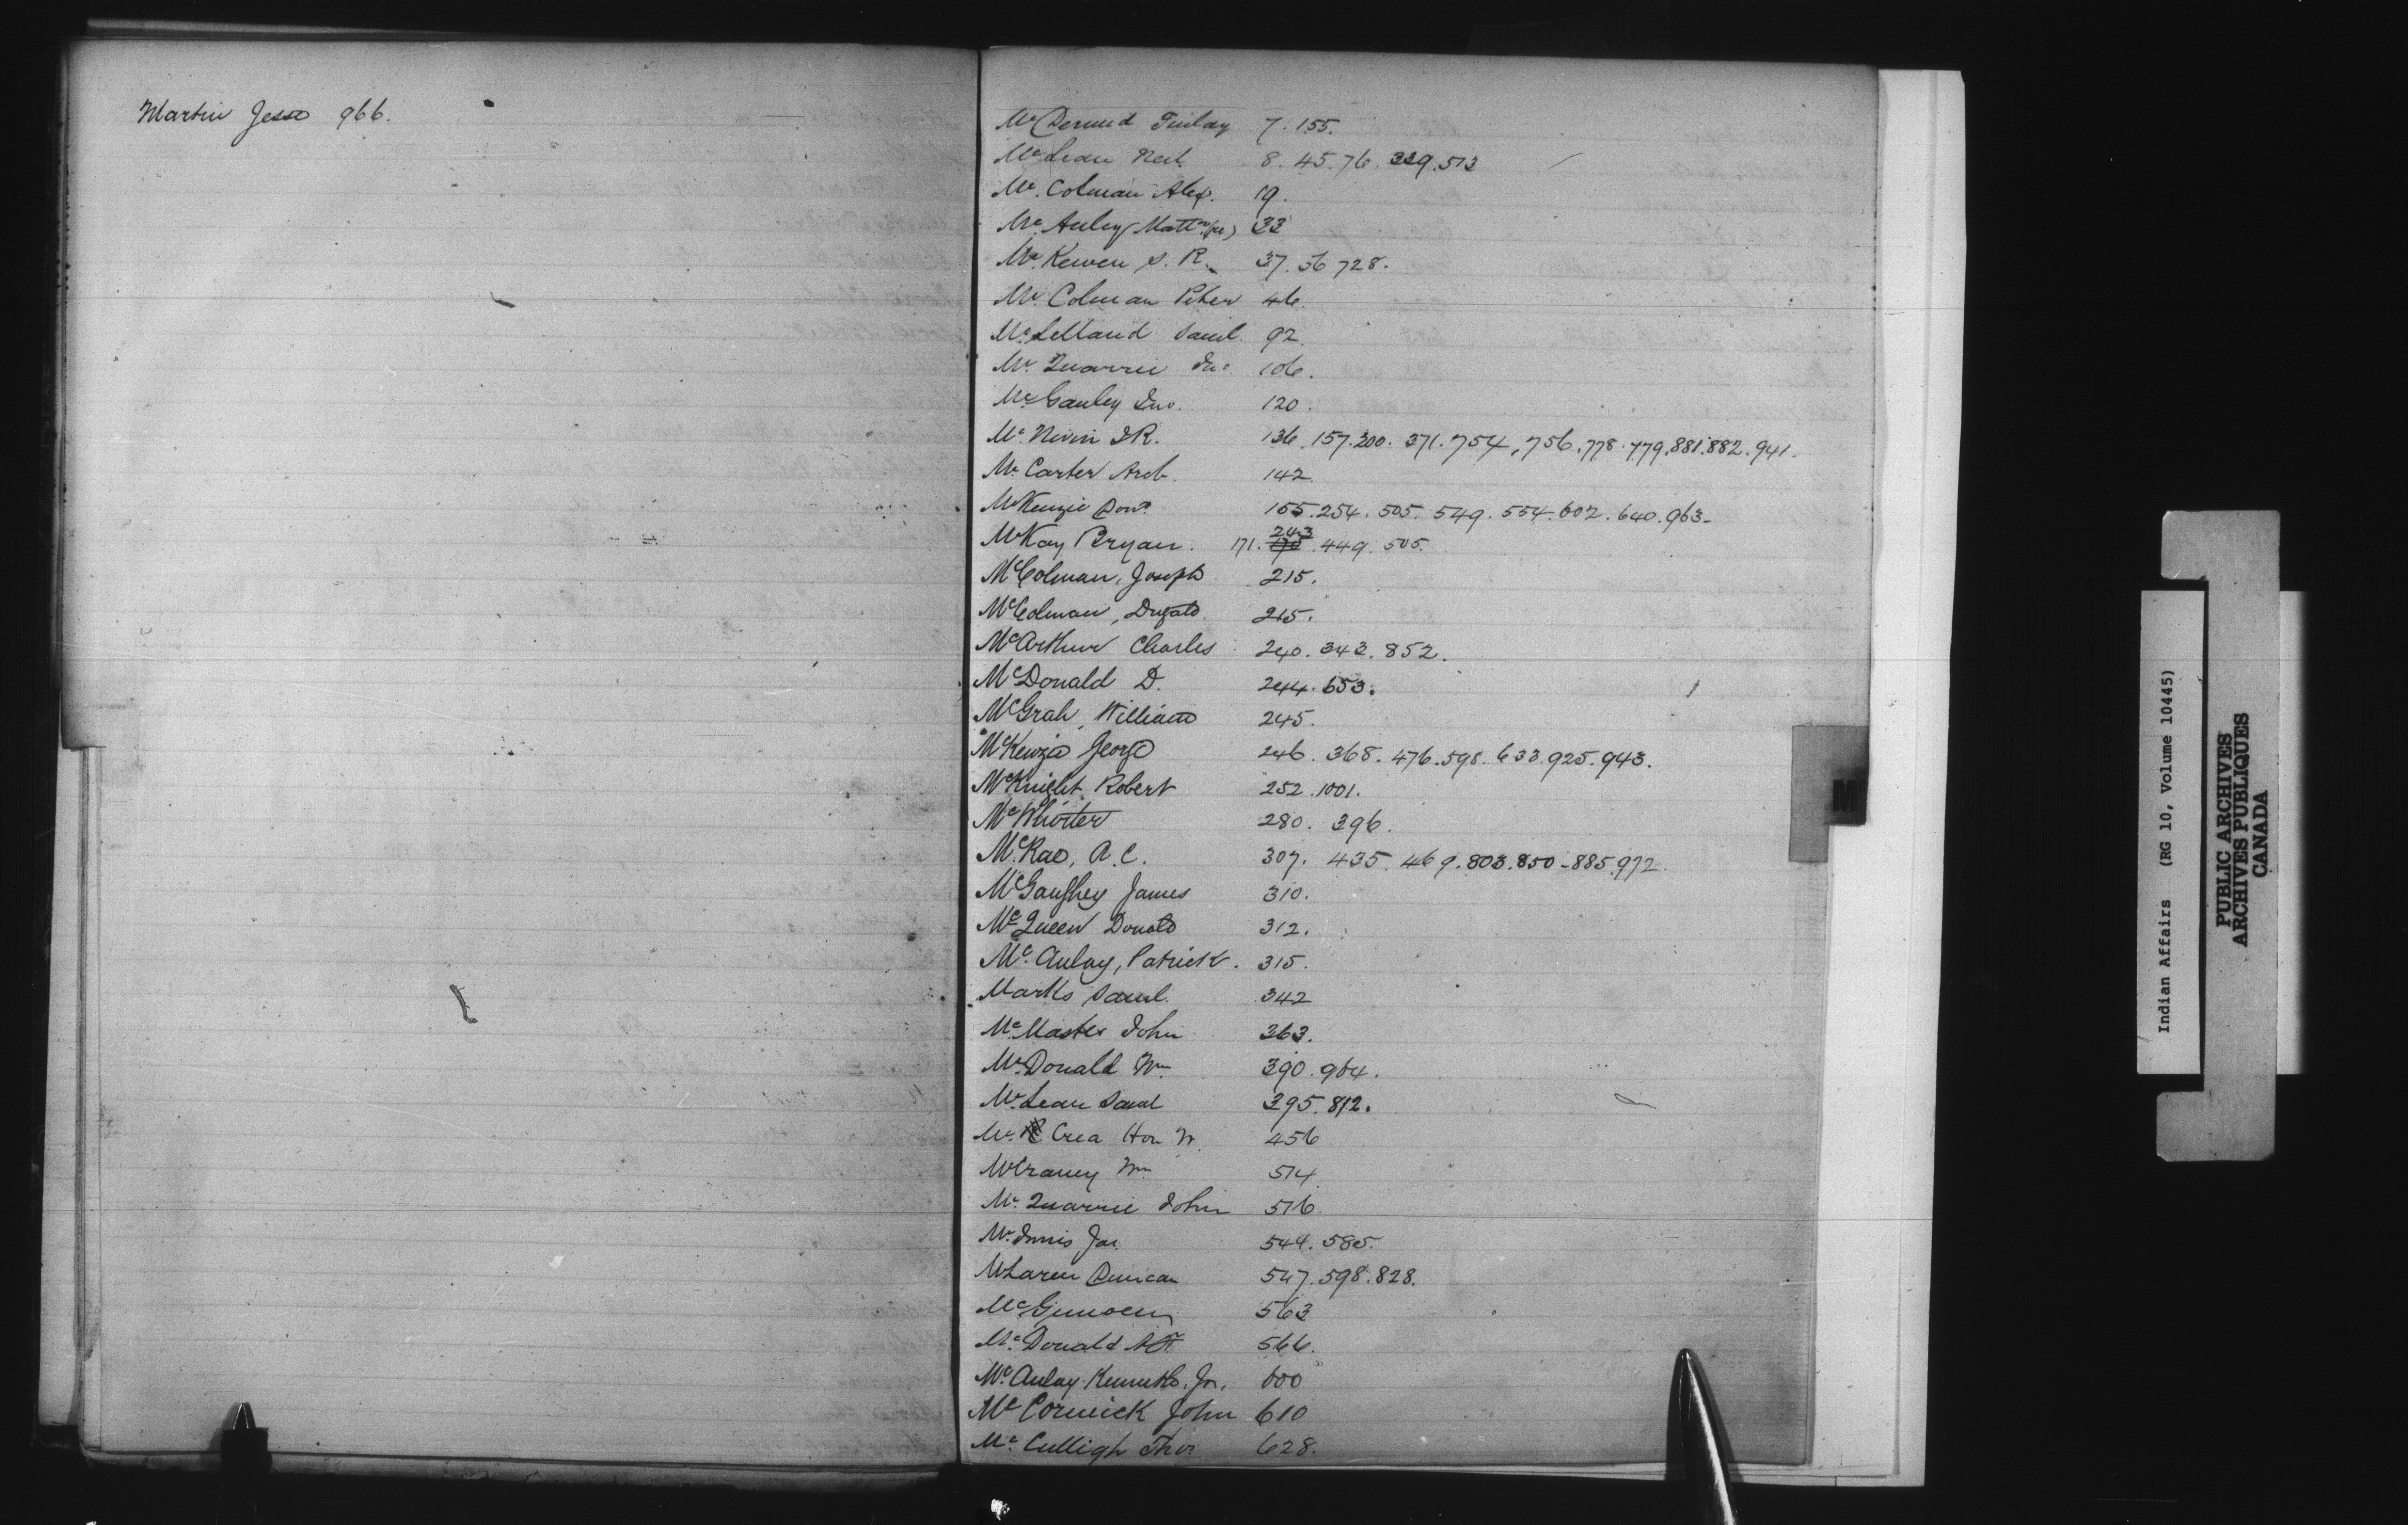 Martin Jesse 966.
McDermid Finlay 7. 155.
McLean Neil 8. 45. 76. 339. 513
Mc. Colman Alex. 19.
Mc. Auley Matt 33
Mc. Kewen S. R. 37. 56 728.
Mc. Colman Peter 46.
Mc. Lelland Saml. 92.
Mc. Quarrie Jno. 106.
Mc. Gauley Jno. 120.
Mc. Nivin D R. 136. 157. 200. 371. 754, 756. 778. 779. 881. 882. 941.
Mc. Carter Arch. 142.
McKenzie Dond. 155. 254. 505. 549. 554. 602. 640. 963.
McKay Bryan. 171. 243 449. 505.
McColman, Joseph 215.
McColman, Dugald. 215.
McArthur Charles 240. 343. 852.
McDonald D. 244. 653.
McGrah, William 245.
McKenzie George 246. 368. 476. 598. 633. 925. 943.
McKnight, Robert 252. 1001.
McWhorter 280. 396.
McRae, A. C. 307. 435. 469. 803. 850-885. 972.
McGaughey James 310.
McQueen Donald 312.
Mc. Aulay, Patrick. 315.
Marks Saml. 342
Mc. Master John 363.
Mc. Donald Wm. 390. 964.
Mc. Lean Saml 395. 812.
Mc. Crea Hon W. 456
McCraney Wm 514.
Mc. Quarrie John 516.
Mc. Innis Jas. 544. 585.
McLaren Duncan 547. 598. 828.
563
Mc. Donald 566.
Mc. Aulay Kenneth. Jr. 600
Mc Cormick John 610
Mc. Culligh Thos 628.
M
Indian Affairs (RG 10, Volume 10445)
PUBLIC ARCHIVES
ARCHIVES PUBLIQUES
CANADA